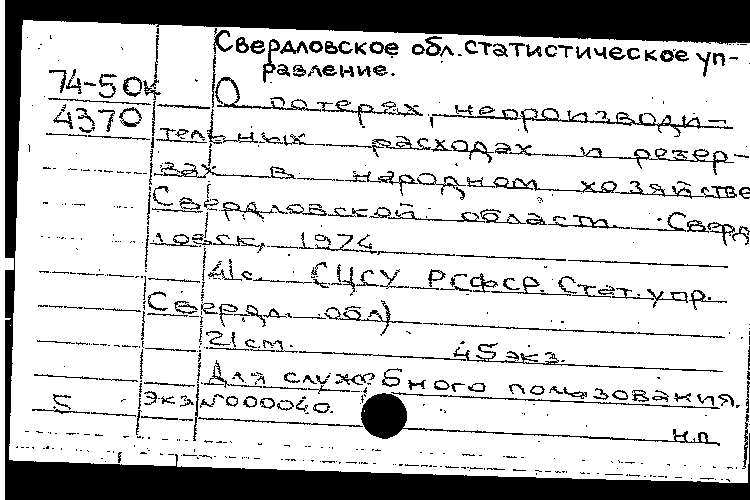 Свердловское обл. статистическое уп-
равление.
74-50к О потерях, непроизводи-
4370 тельных расходах и резер-
вах в народном хозяйстве
Свердловской области. Сверд
ловск, 1974
41с. (ЦСУ РСФСР. Стат. упр.
Свердл. обл)
21см. 45 экз.
Для служебного пользования.
5 Экз №000040.
н.п.